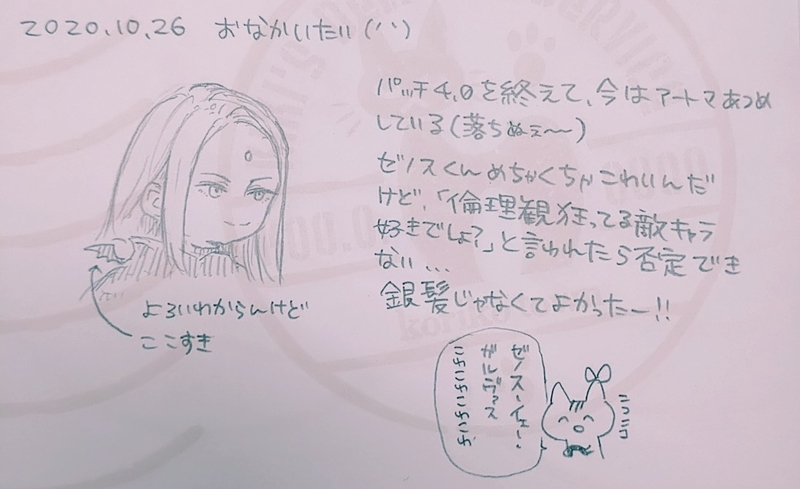 2020.10.26 おなかいたい(ハハ)
パッチ4.0を終えて、今はアートマあつめ
している(落ちぬぇ〜〜)
ゼノスくんめちゃくちゃこわいんだ
けど、「倫理観狂ってる敵キャラ
好きでしょ?」と言われたら否定でき
ない...
銀髪じゃなくてよかったー!!
よろいわからんけど
ここすき
ゼノス・イェー・
ガルヴァス
ニコニコ